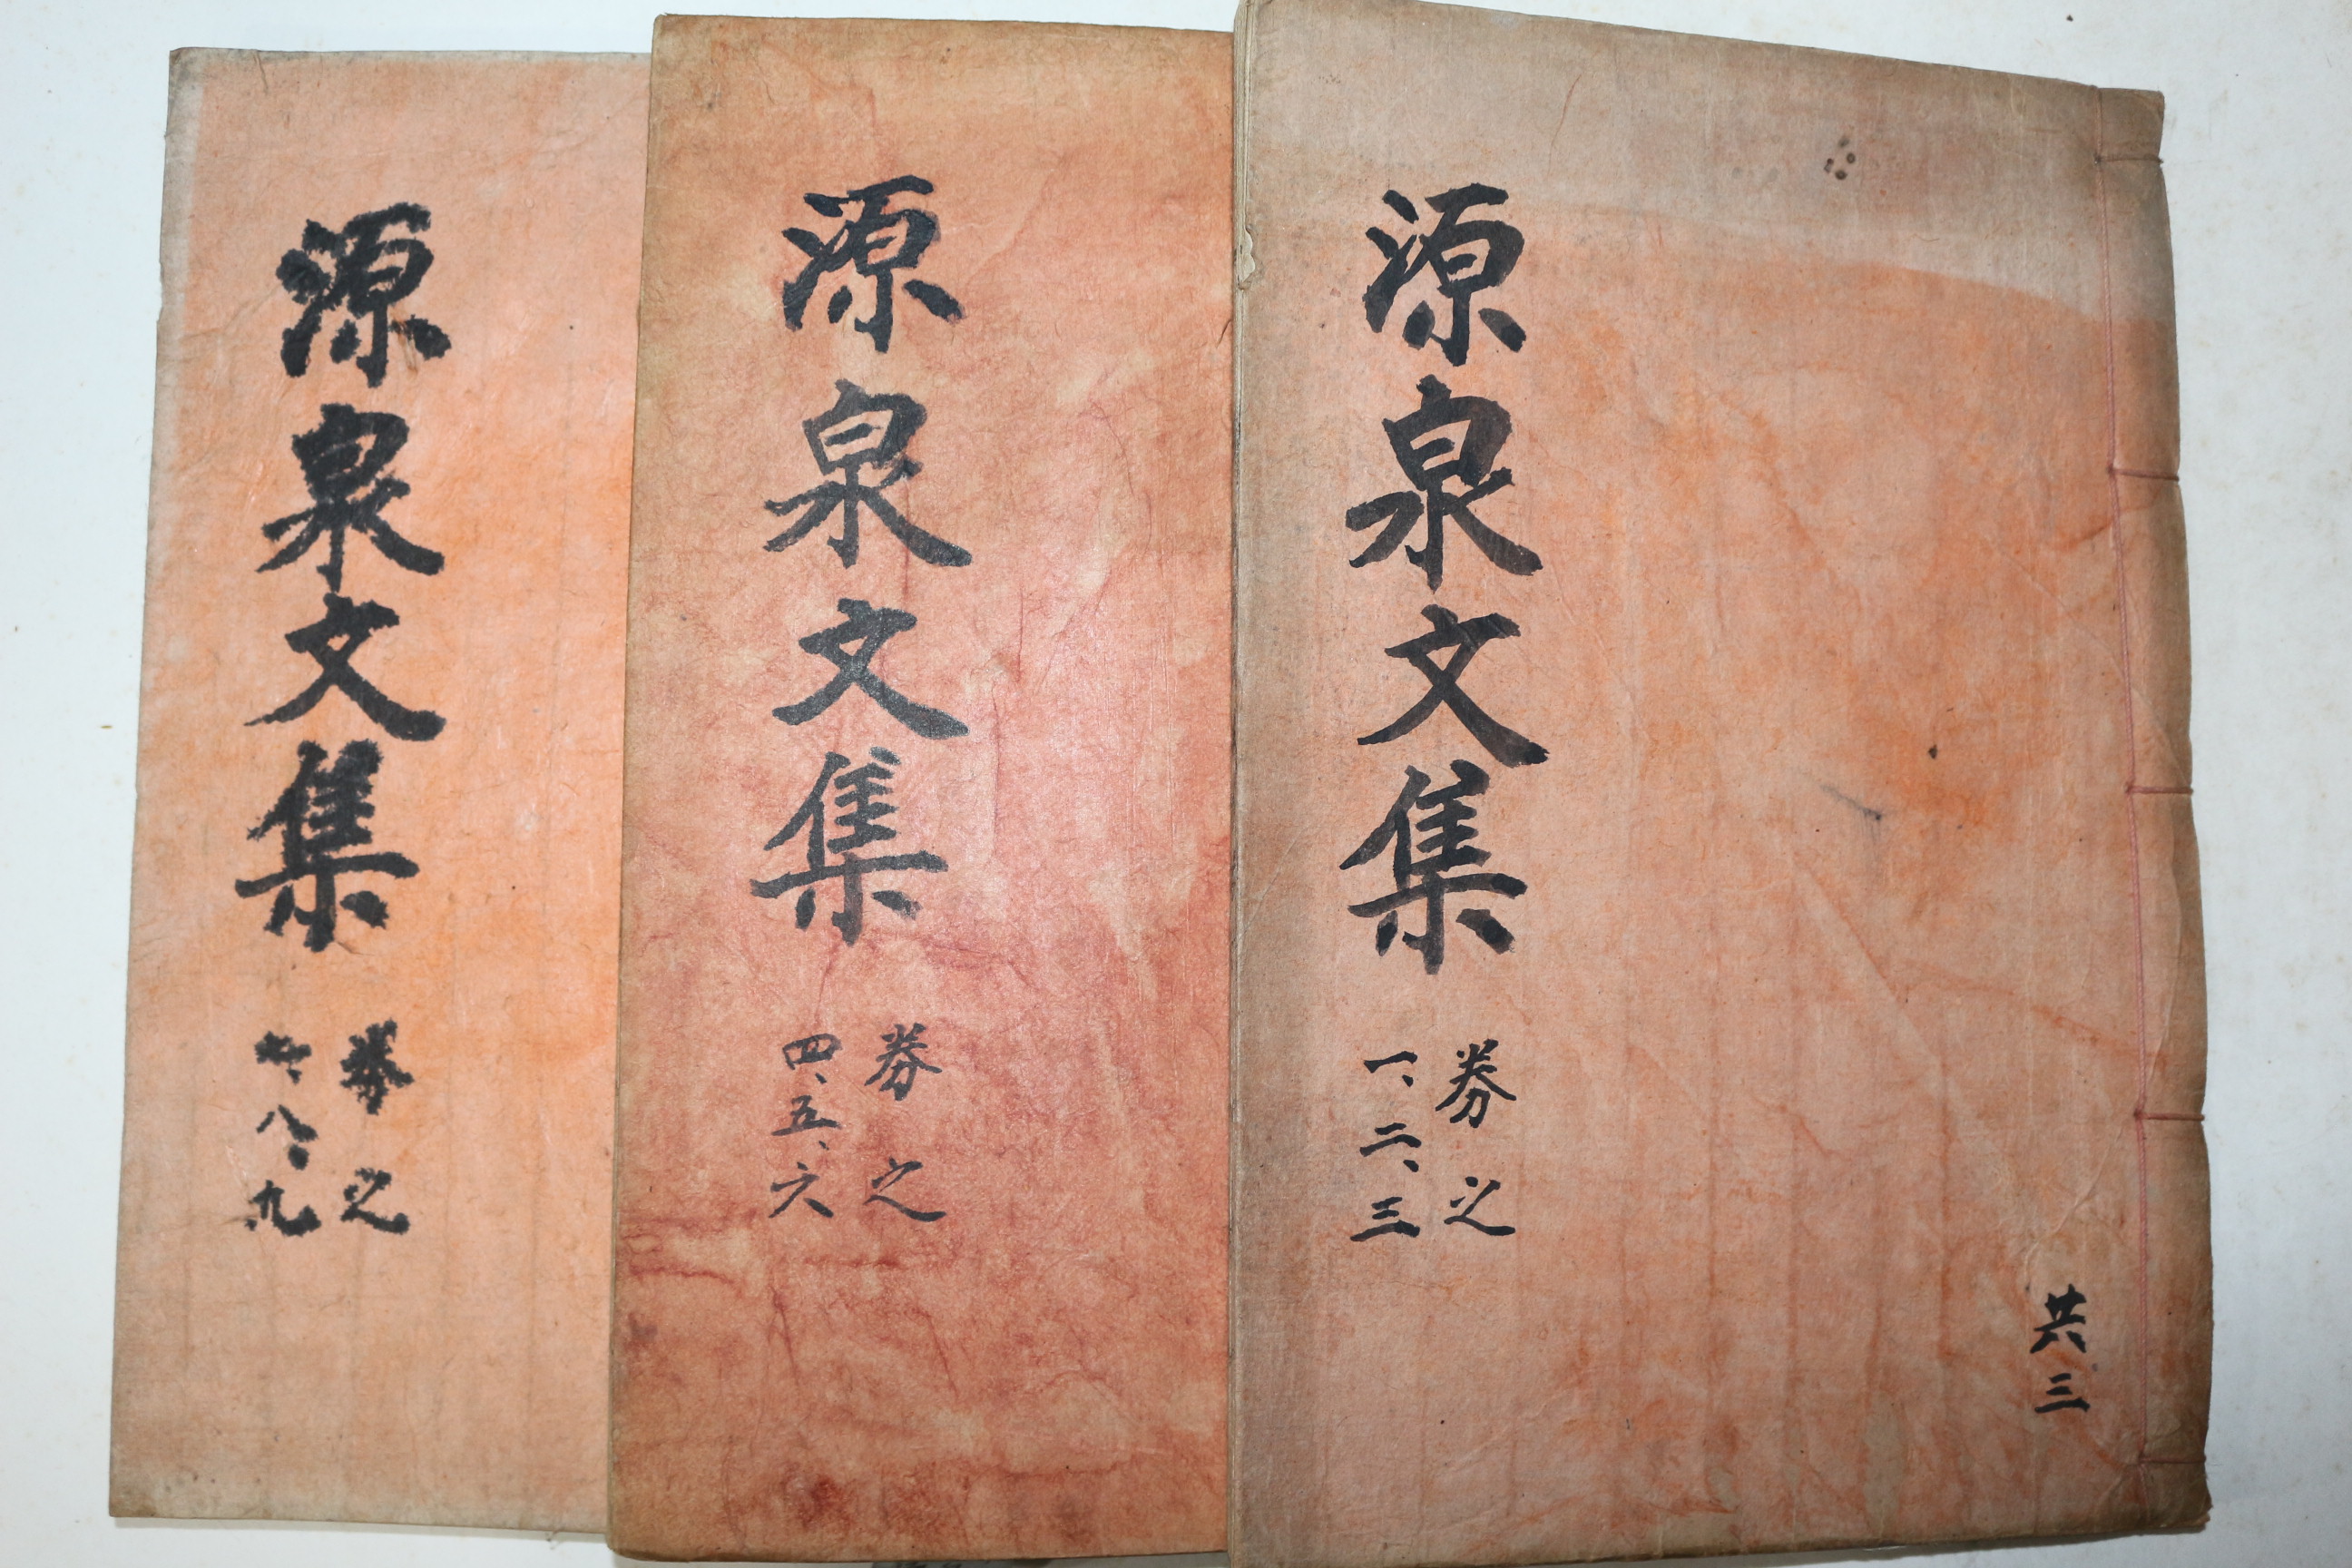 源泉文集
券之
一、二、三
共三
源泉文集
券之
四、五、六
源泉文集
券之
七、八、九